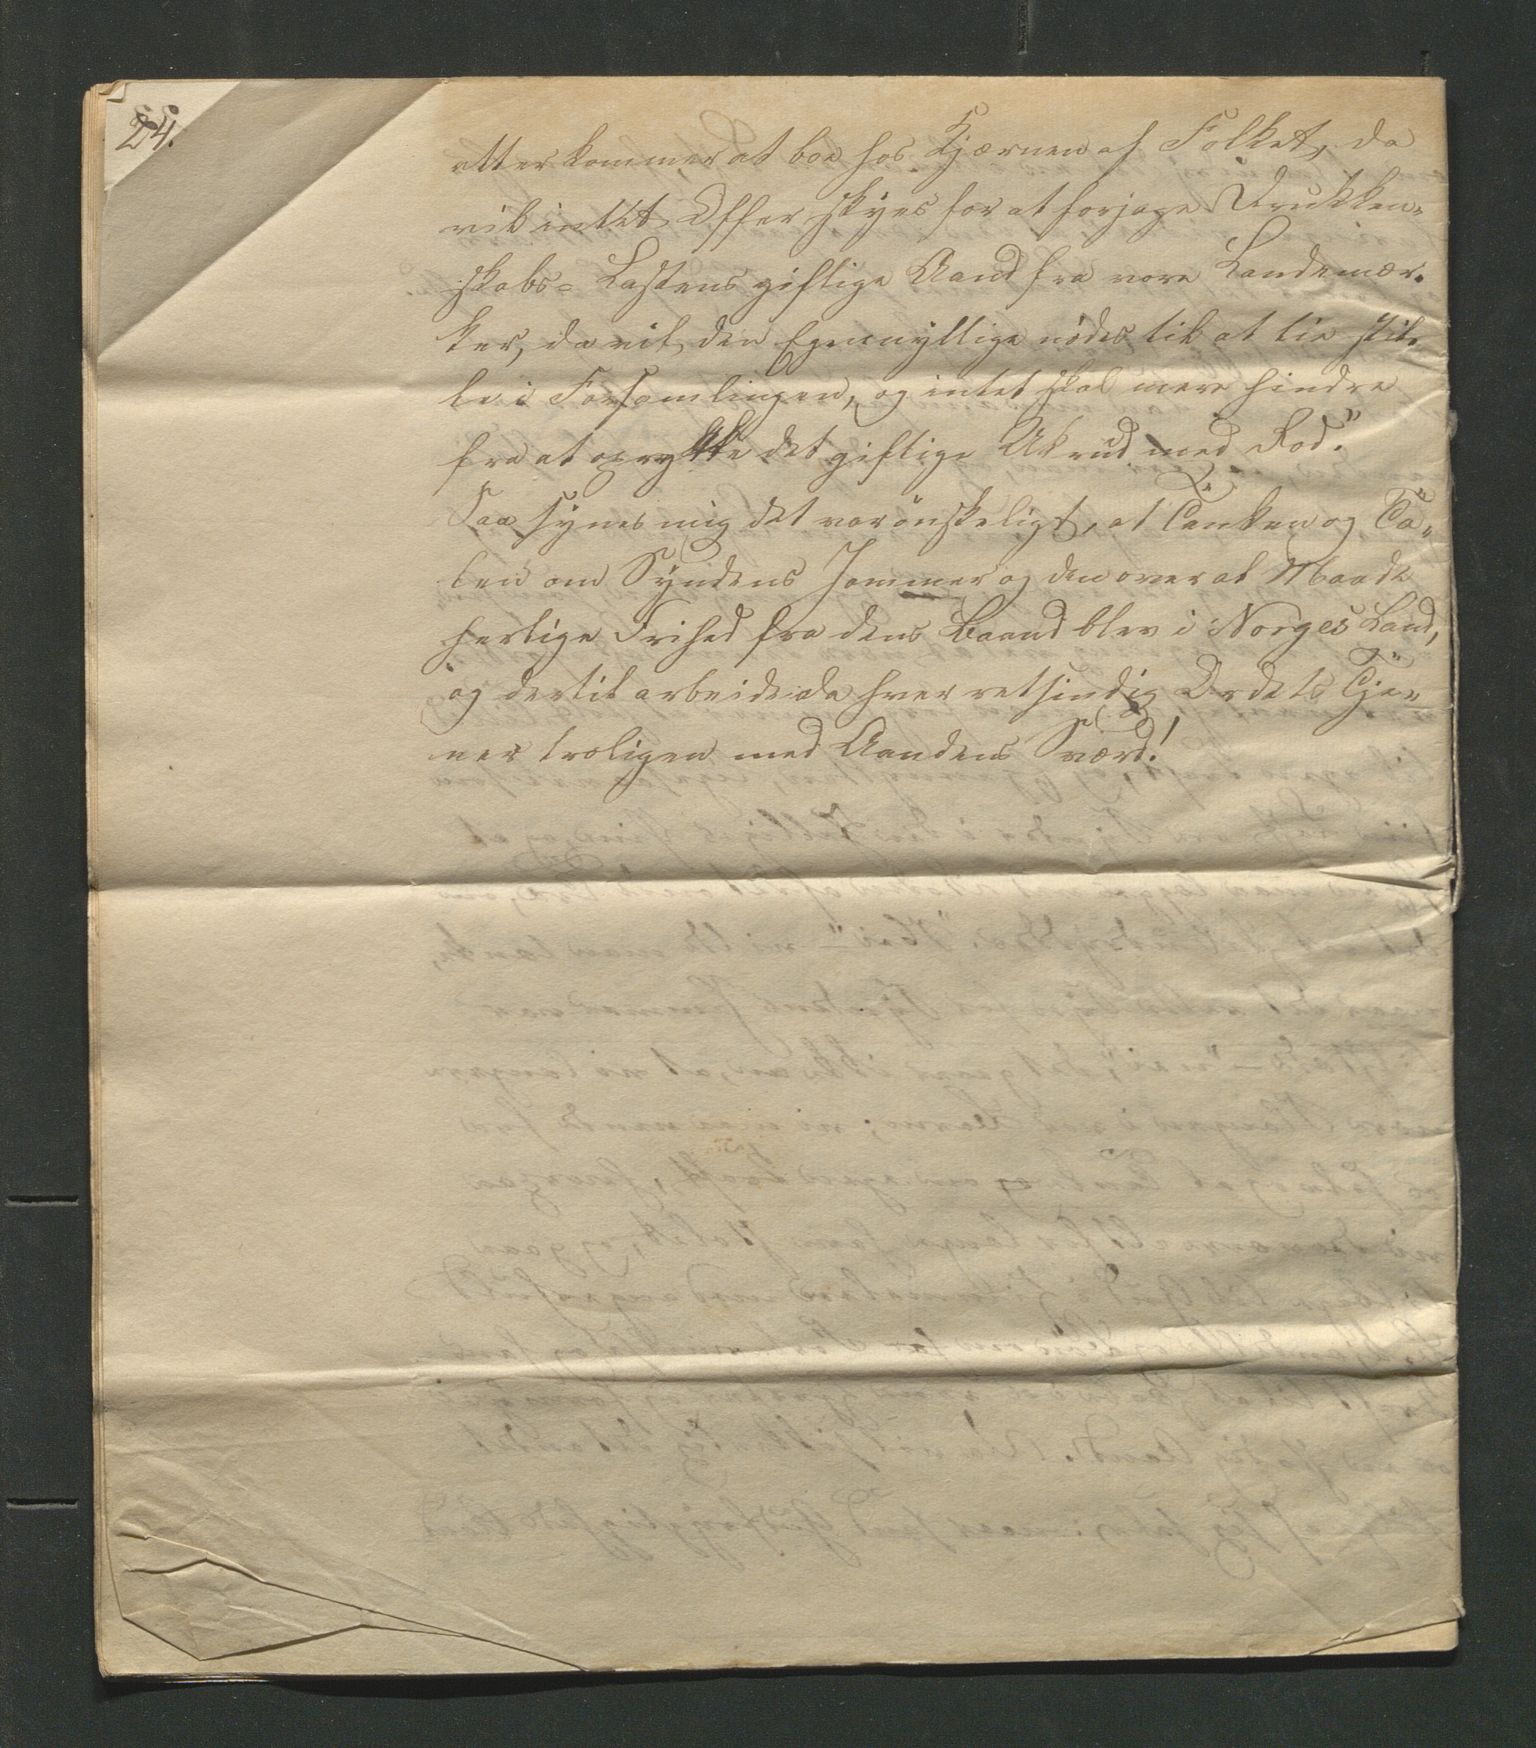 24.
etter kommer at boe hos Kjærnen af Folket, da
vil intet Offer skyes for at forjage Drukken-
skabs- Lastens giftige Aand fra vore Landemær-
ker, da vil den Egennyttige nödes til at tie stil-
le i Forsamlingen, og intet skal mere hindre
fra at oprykke det giftige Ukrud med Rod."
Saa synes mig det var önskeligt, at Tanken og Ta-
len om Syndens Jammer og den over al Maade
herlige Frihed fra dens Baand blev i Norges Land,
og dertil arbeide da hver retsindig Ordets Tje-
ner troligen med Aandens Sværd!